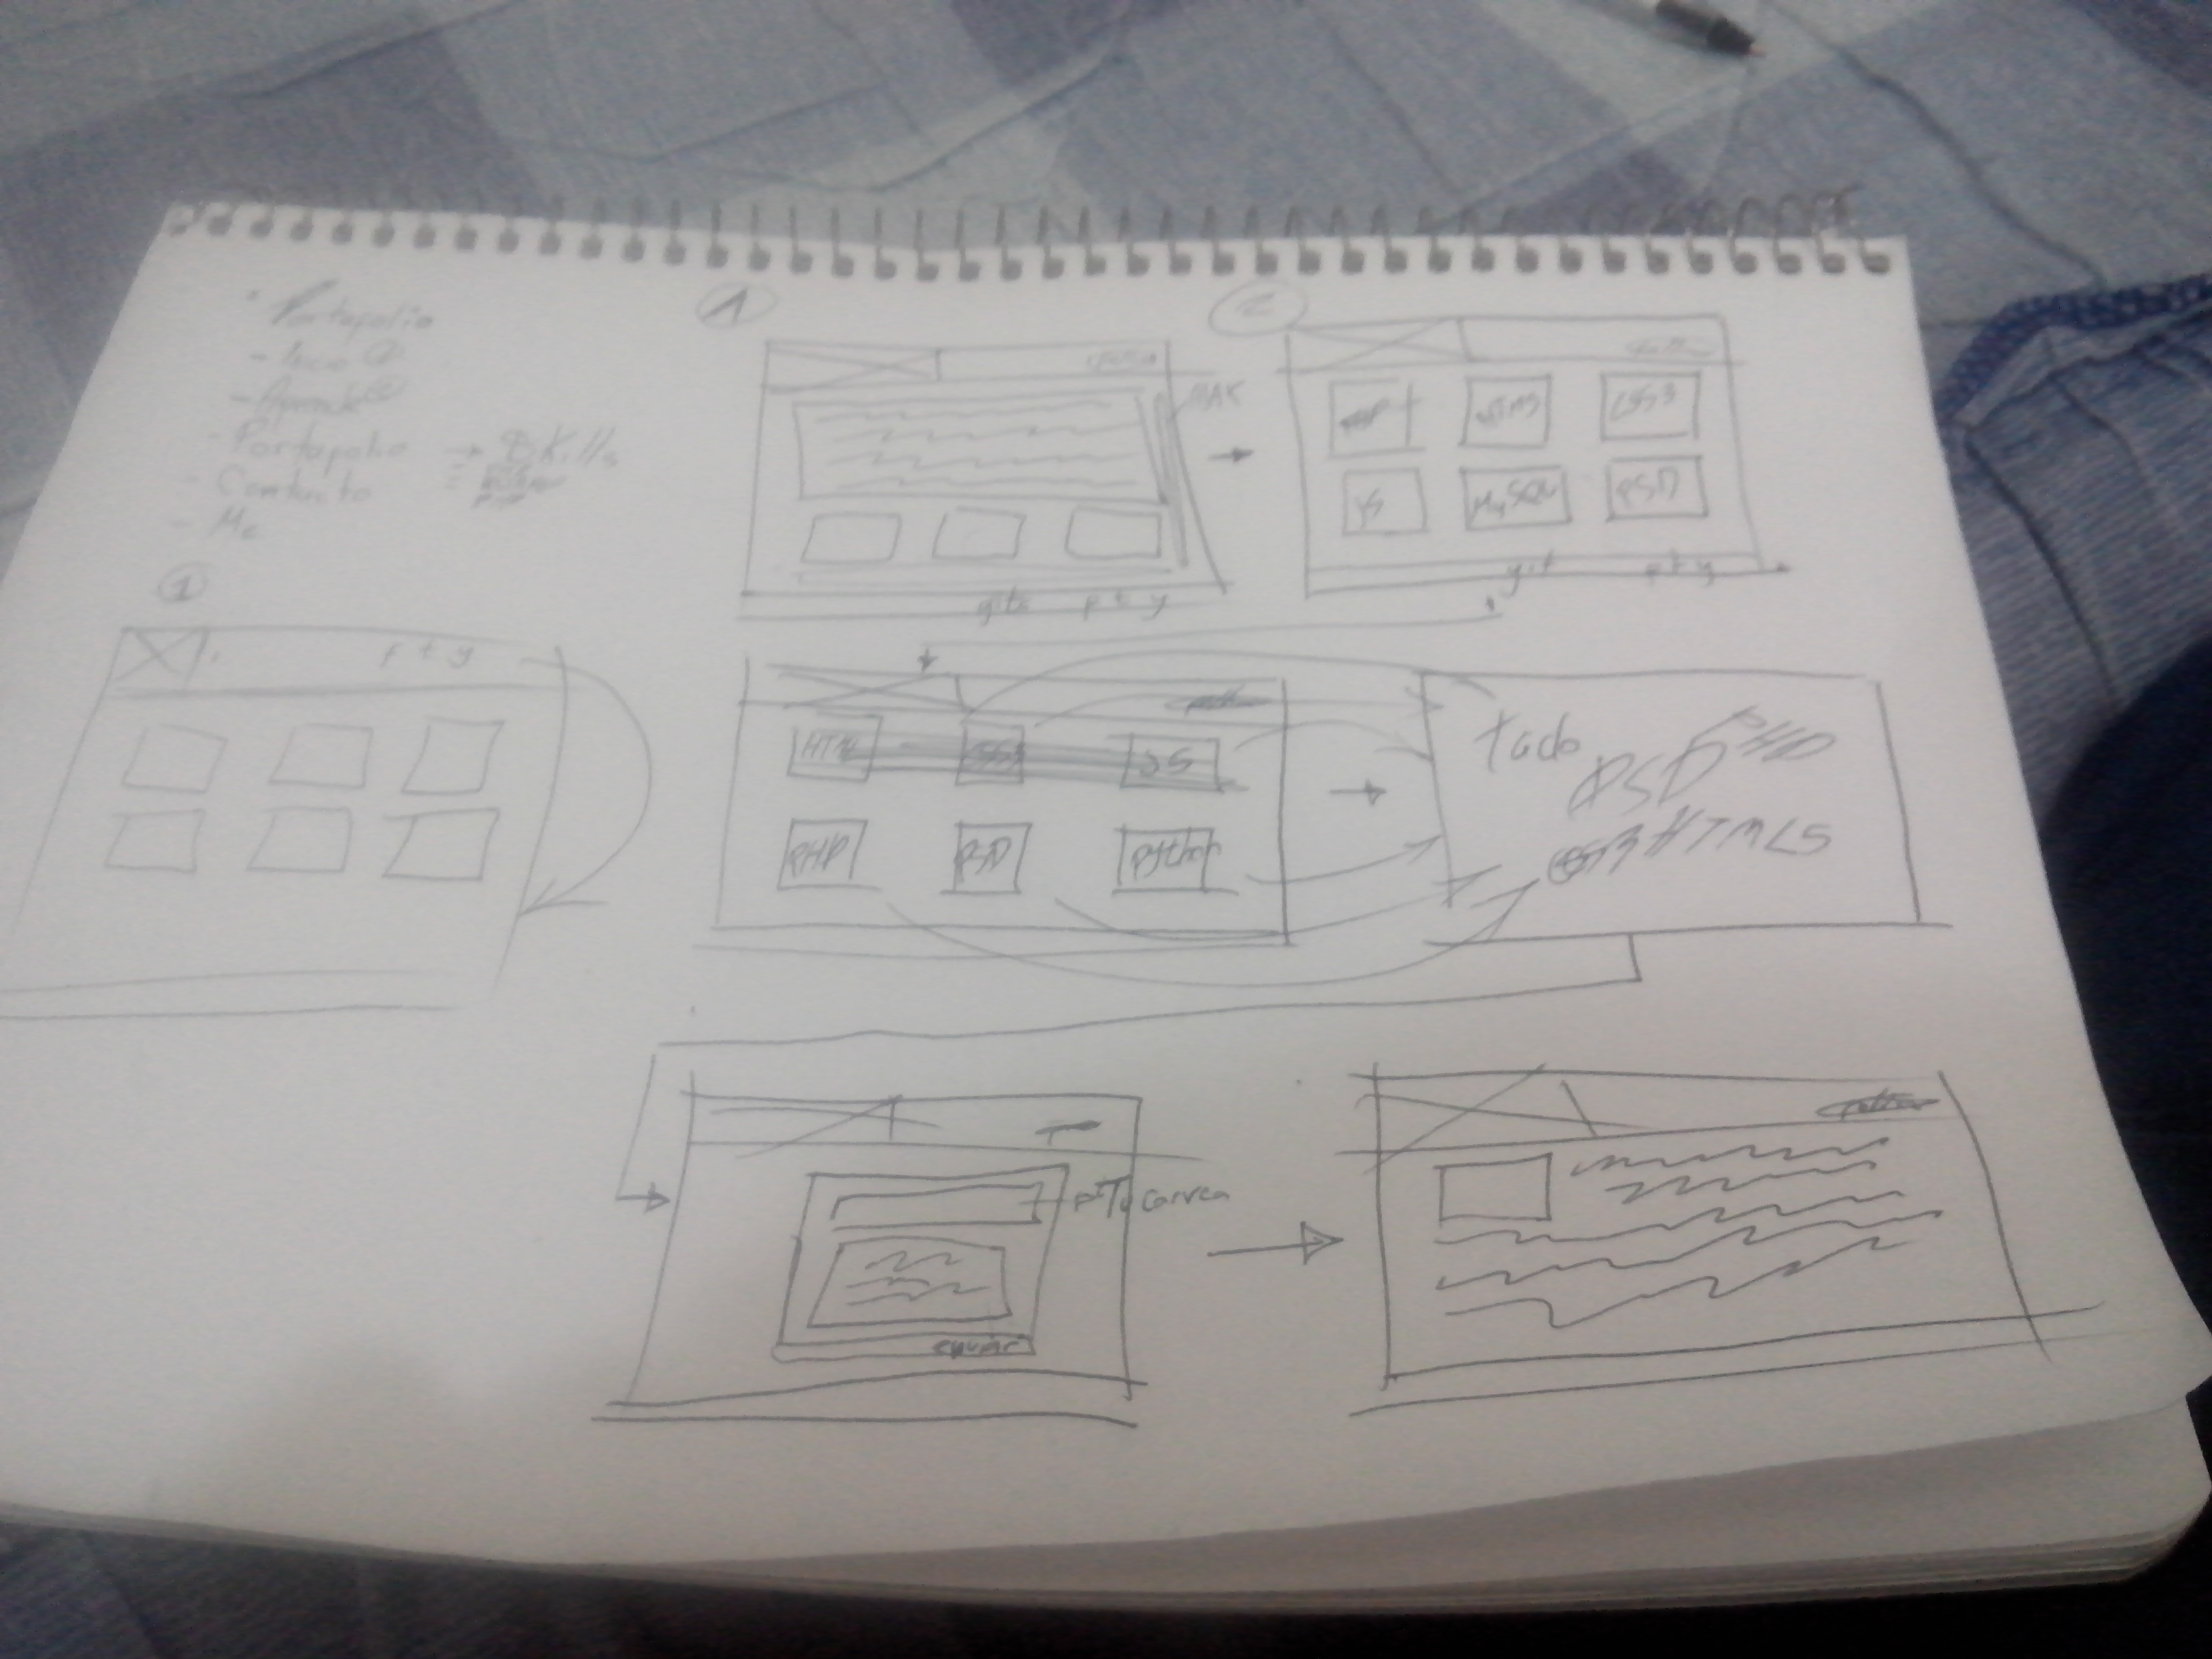 Portapolio
- Inicio
- Aprende
- Portapolio → SKills
- Contacto
- Me
1
f t y
1
MAK
gite f t y
2
PHP HTML5 CSS3
JS MySQL PSD
git f t y
HTML CSS3 JS
PHP PSD Python
todo
PSD PHP
CSS3 HTML5
Tu correo
enviar